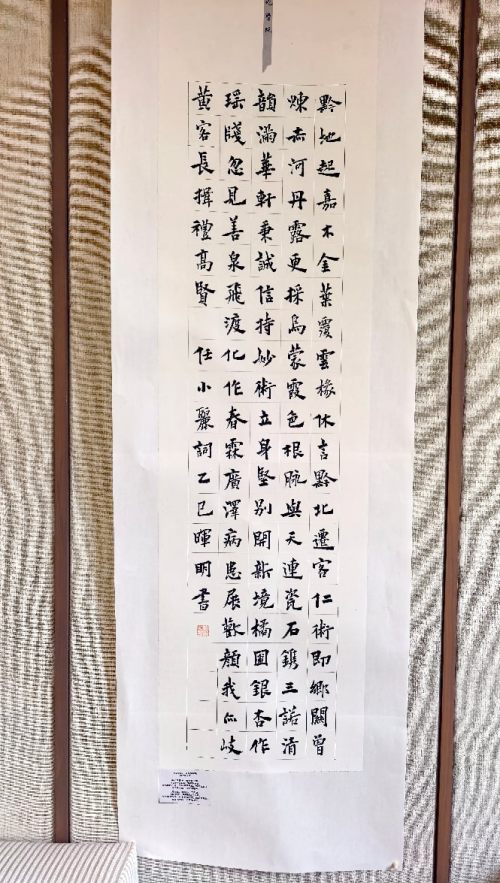 黔地起嘉木金葉覆雲椽休言黔北遷客仁術即鄉關曾
煉赤河丹露更採烏蒙霞色根脉與天連瓷石鐫三諾清
韻滿華軒秉誠信持妙術立身堅別開新境橘園銀杏作
瑶牋忽見善泉飛渡化作春霖廣澤病患展歡顏我岐
黄客長揖禮高賢 任小麗詞乙巳暉明書